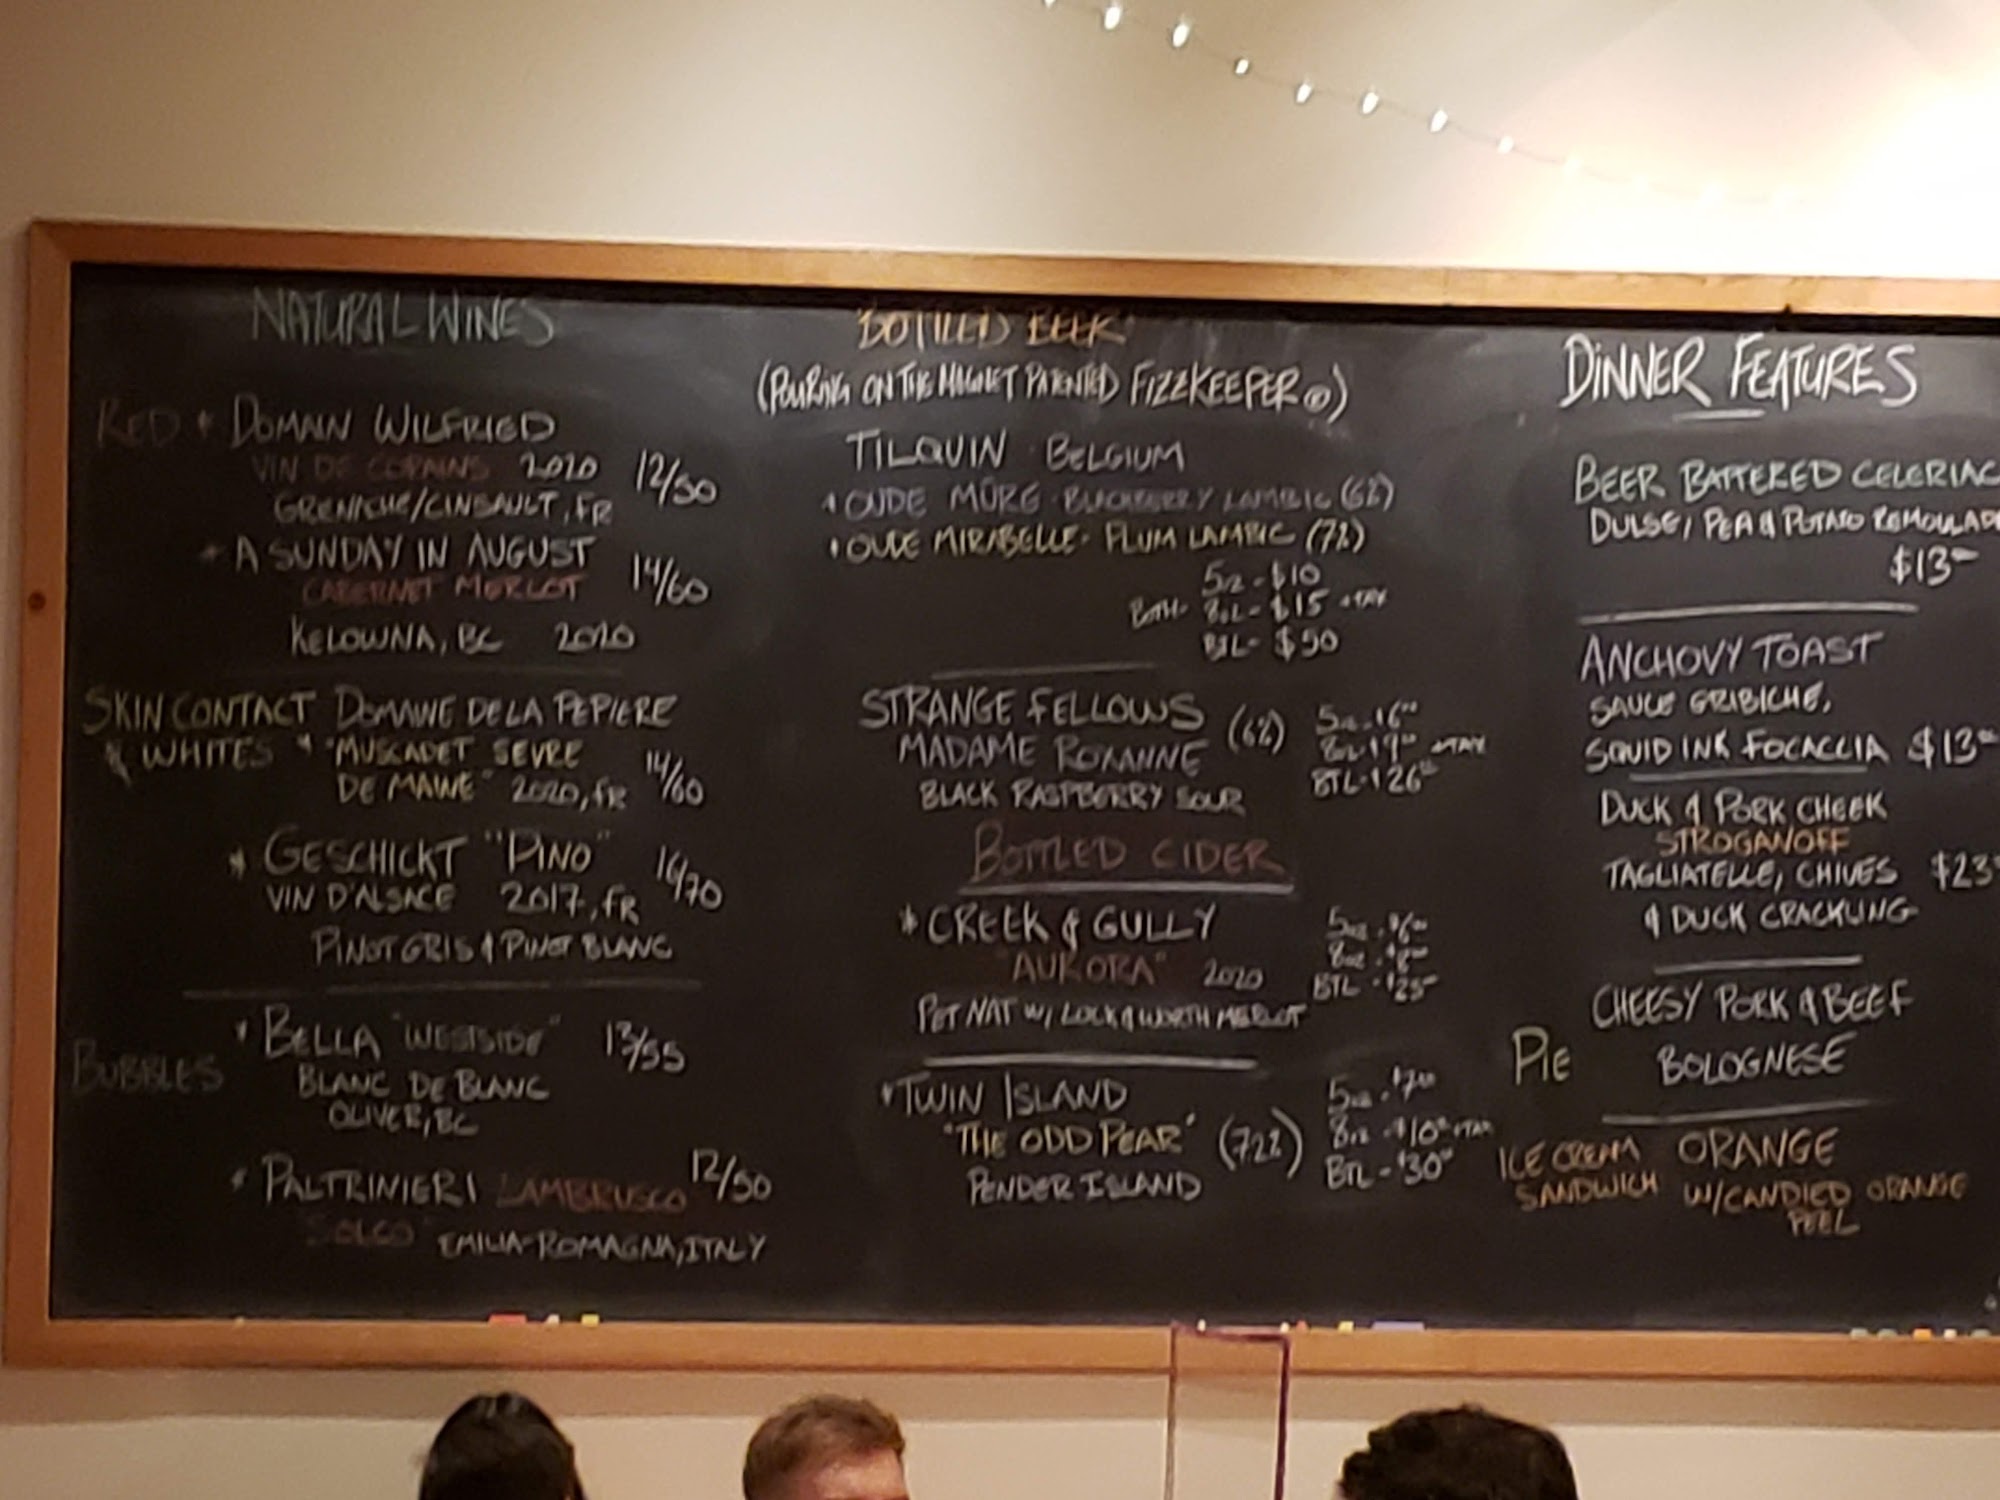 NATURAL WINES
RED * DOMAIN WILFRIED
VIN DE COPAINS 2020 12/50
GRENACHE/CINSAULT, FR
* A SUNDAY IN AUGUST
CABERNET MERLOT 14/60
KELOWNA, BC 2020
SKIN CONTACT DOMAINE DE LA PEPIERE
& WHITES * "MUSCADET SEVRE
DE MAINE" 2020, FR 14/60
* GESCHICKT "PINO" 16/70
VIN D'ALSACE 2017, FR
PINOT GRIS & PINOT BLANC
BUBBLES * BELLA "WESTSIDE" 13/55
BLANC DE BLANC
OLIVER, BC
* PALTRINIERI LAMBRUSCO 12/50
EMILIA-ROMAGNA, ITALY
BOTTLED BEER
(POURING ON THE MAGNET PATENTED FIZZKEEPER ®)
TILQUIN · BELGIUM
* OUDE MÛRE · BLACKBERRY LAMBIC (6%)
* OUDE MIRABELLE · PLUM LAMBIC (7%)
5oz - $10
BOTH - 8oz - $15 +TAX
BTL - $50
STRANGE FELLOWS (6%) 5oz - $6
MADAME ROXANNE 8oz - $9 +TAX
BLACK RASPBERRY SOUR BTL - $26
BOTTLED CIDER
* CREEK & GULLY 5oz - $6
"AURORA" 2020 8oz - $8
PET NAT W/ LOCK & WORTH MERLOT BTL - $25
* TWIN ISLAND 5oz - $7
"THE ODD PEAR" (7.2%) 8oz - $10 +TAX
PENDER ISLAND BTL - $30
DINNER FEATURES
BEER BATTERED CELERIAC
DULSE, PEA & POTATO REMOULAD
$13
ANCHOVY TOAST
SAUCE GRIBICHE,
SQUID INK FOCACCIA $13
DUCK & PORK CHEEK
STROGANOFF
TAGLIATELLE, CHIVES $23
& DUCK CRACKLING
CHEESY PORK & BEEF
PIE BOLOGNESE
ICE CREAM ORANGE
SANDWICH W/CANDIED ORANGE
PEEL